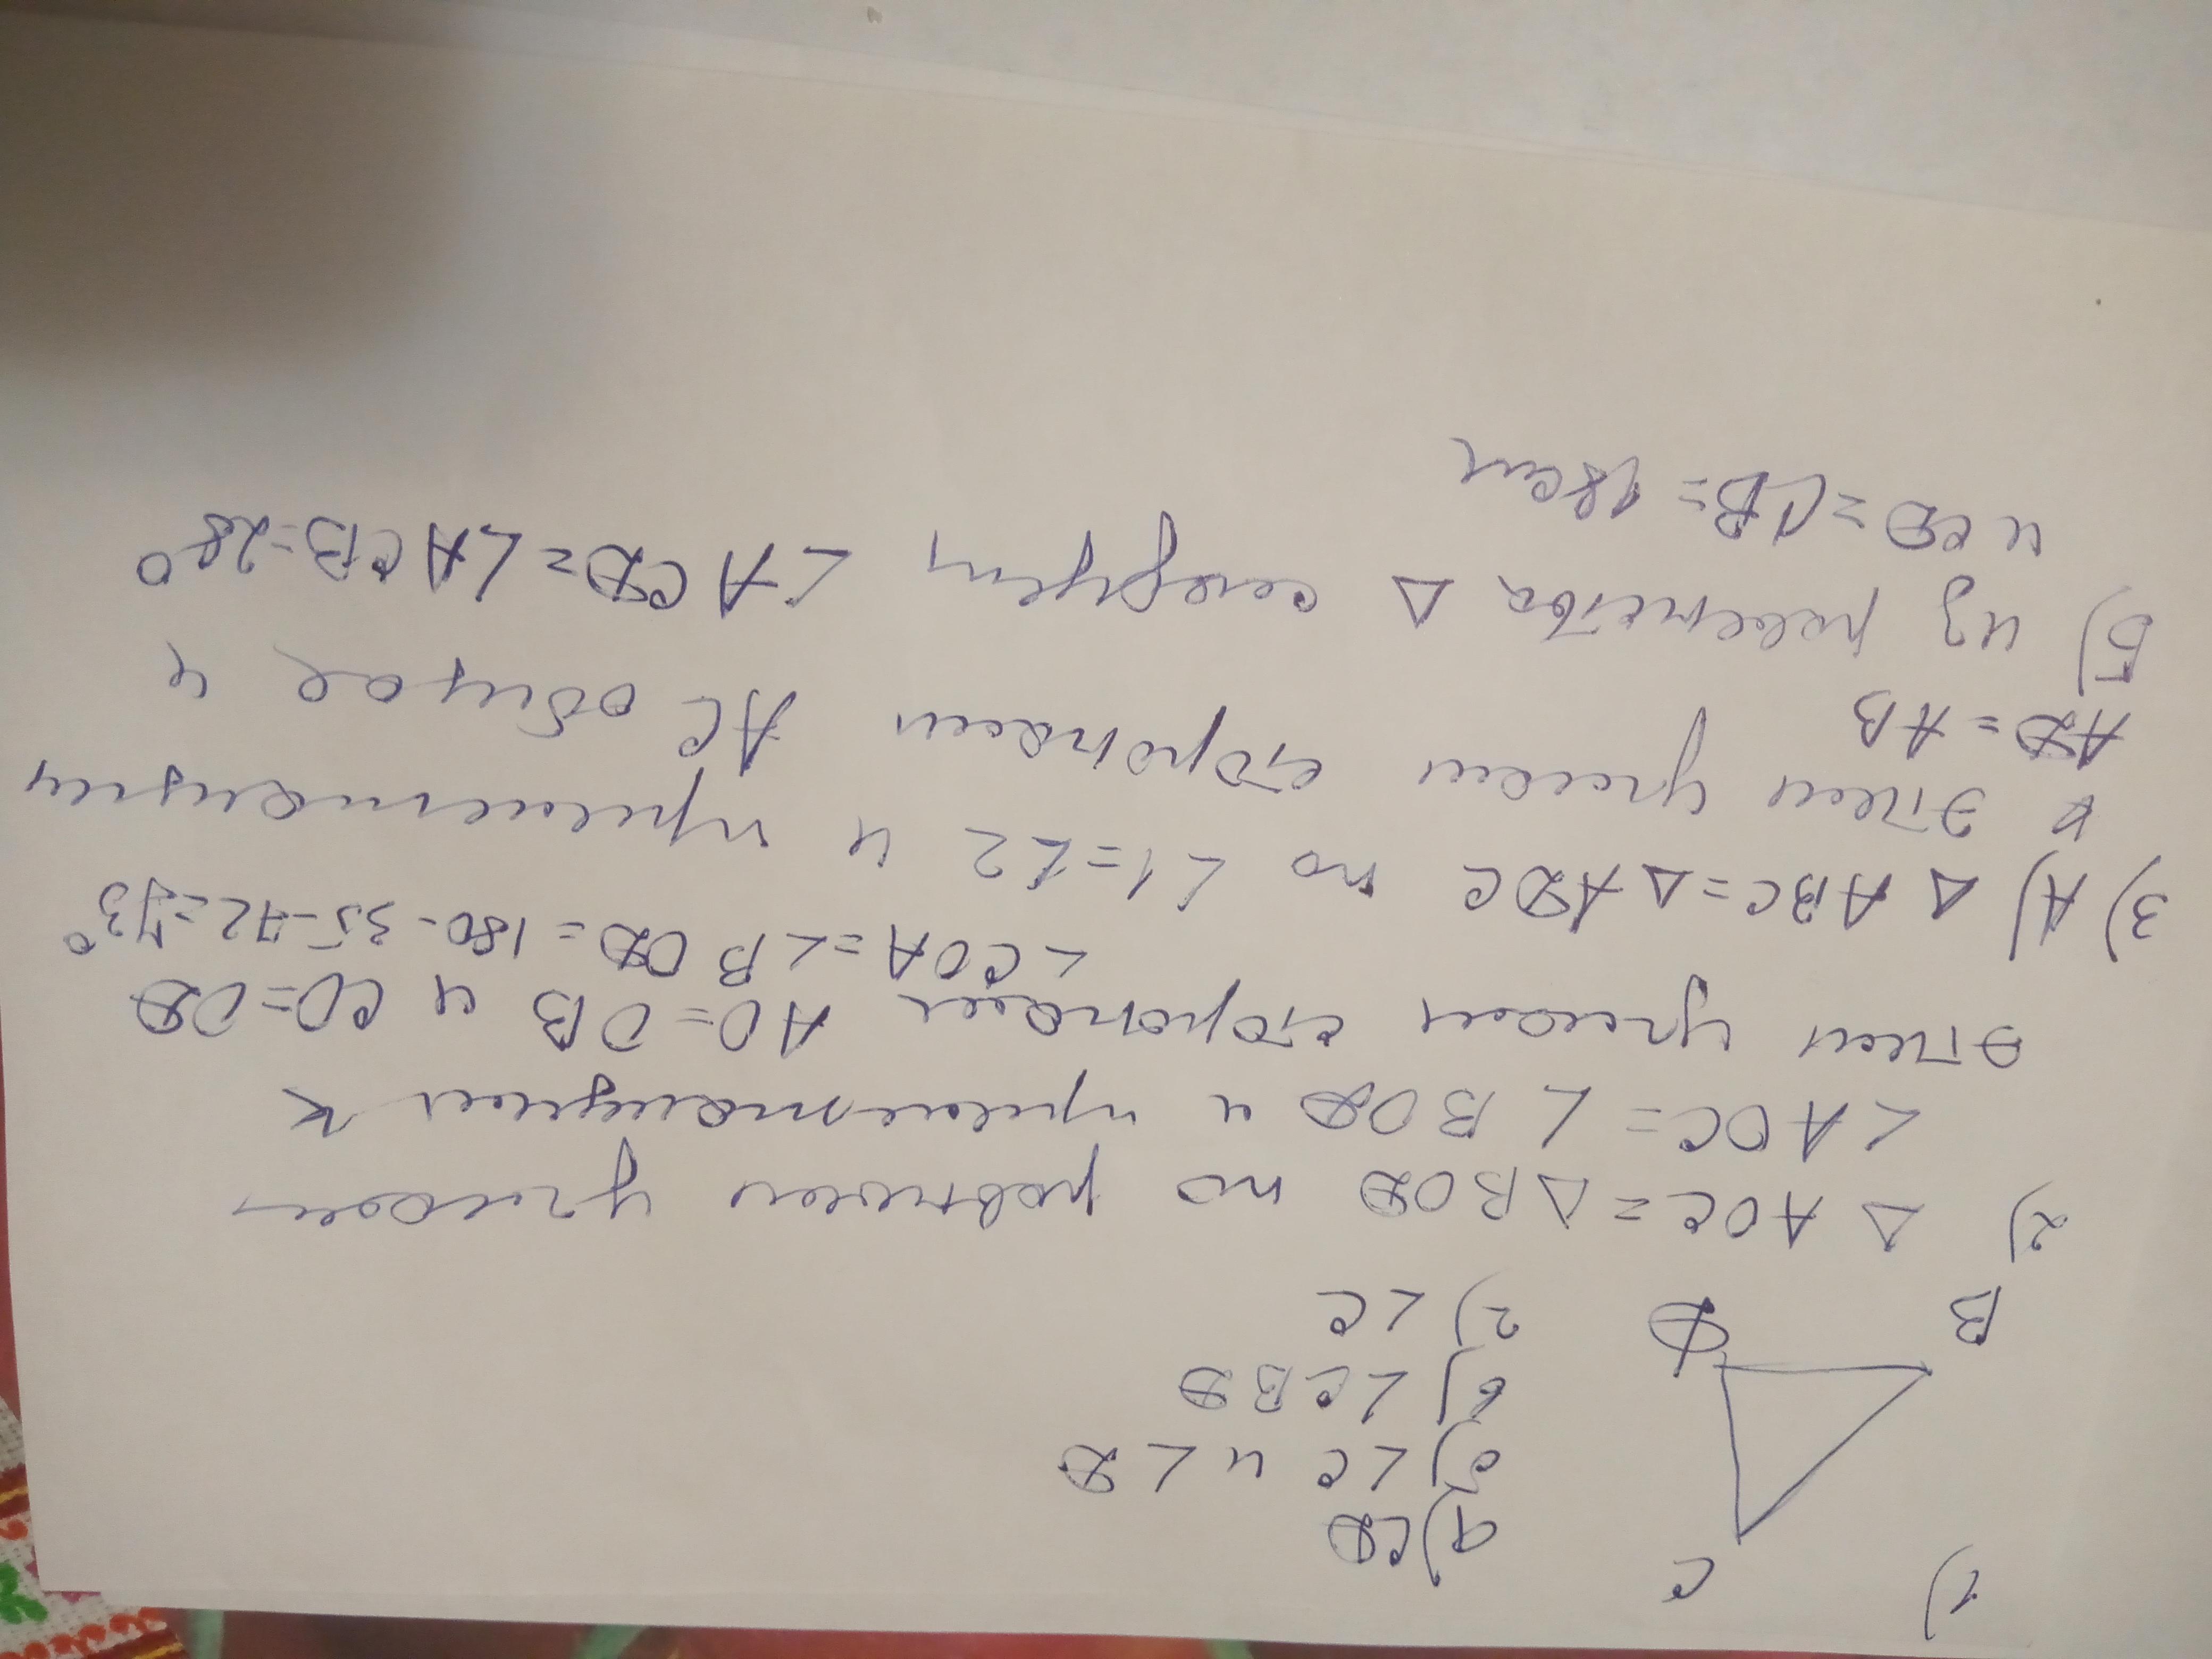 1) C
а) CD
б) ∠C и ∠D
в) ∠CBD
г) ∠C
B D
2) △ AOC = △ BOD по равным углам
∠AOC = ∠BOD и прилежащим к
этим углам сторонам AO = OB и CO = OD
∠COA = ∠BOD = 180 - 35 - 72 = 73°
3) А) △ ABC = △ ADC по ∠1 = ∠2 и прилежащим
к этим углам сторонам AC общая и
AD = AB
Б) из равенства △ следует ∠ACD = ∠ACB = 28°
и CD = CB = 18см